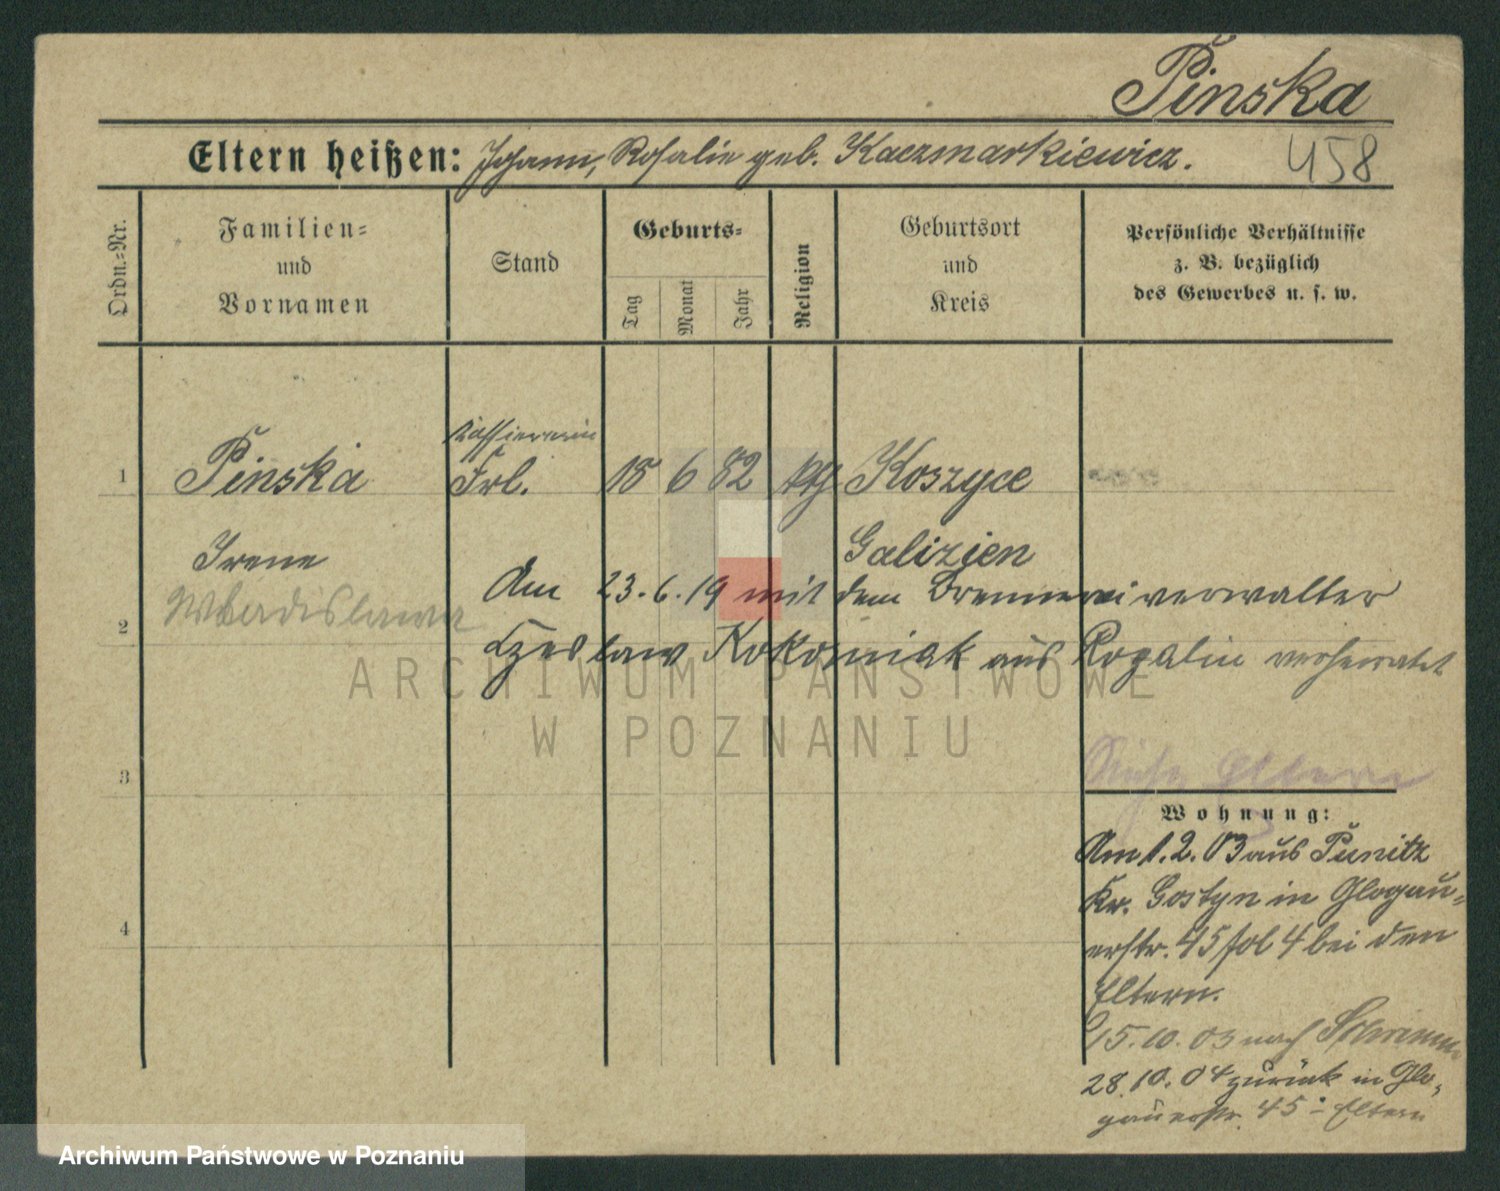 Pinska
Eltern heißen: Johann, Rosalie geb. Kaczmarkiewicz.
458
Ordn.=Nr.
Familien=
und
Vornamen
Stand
Geburts=
Tag
Monat
Jahr
Religion
Geburtsort
und
Kreis
Persönliche Verhältnisse
z. B. bezüglich
des Gewerbes u. s. w.
Kassiererin
1 Pinska Frl. 18 6 82 kth Koszyce
Irene Galizien
Wladislawa
Am 23.6.19 mit dem Brennereiverwalter
2
Czeslaw Kokorniak aus Rogalin verheiratet
3
Siehe Eltern
Wohnung:
Am 1.2.03 aus Punitz
Kr. Gostyn in Glogau-
erstr. 45 fol 4 bei den
4
Eltern.
15.10.03 nach Schrimm
28.10.04 zurück in Glo-
gauerstr. 45 - Eltern
ARCHIWUM PAŃSTWOWE
W POZNANIU
Archiwum Państwowe w Poznaniu